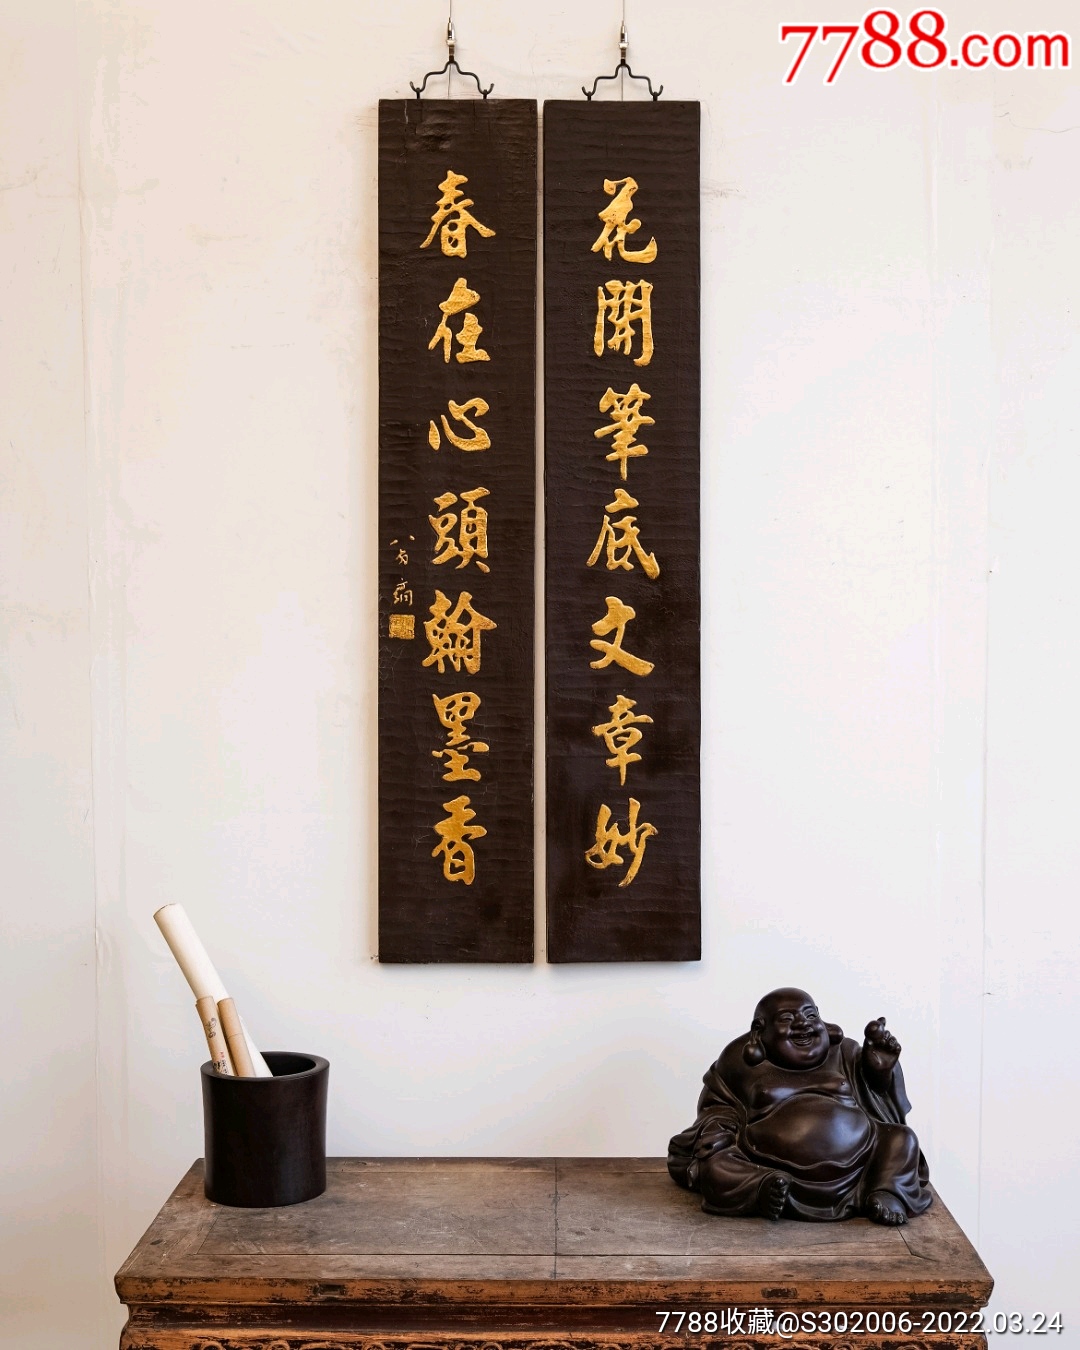 7788.com
花開筆底文章妙
春在心頭翰墨香
7788收藏@S302006-2022.03.24